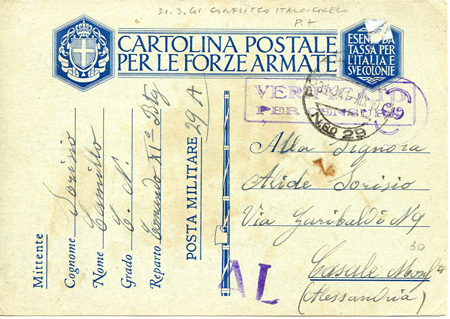 31.3.41 CONFLITTO ITALO-GRECO
P.A
CARTOLINA POSTALE
PER LE FORZE ARMATE
ESENTE DA
TASSA PER
L'ITALIA E
SVE COLONIE
VERIFICATO
PER CENSURA
No 29
Mittente
Cognome Sorisio
Nome Camillo
Grado C. N.
Reparto Comando XI° Btg
POSTA MILITARE 29 A
Alla Signora
Alide Sorisio
Via Garibaldi N 9
30
Casale Monf.to
(Alessandria)
AL